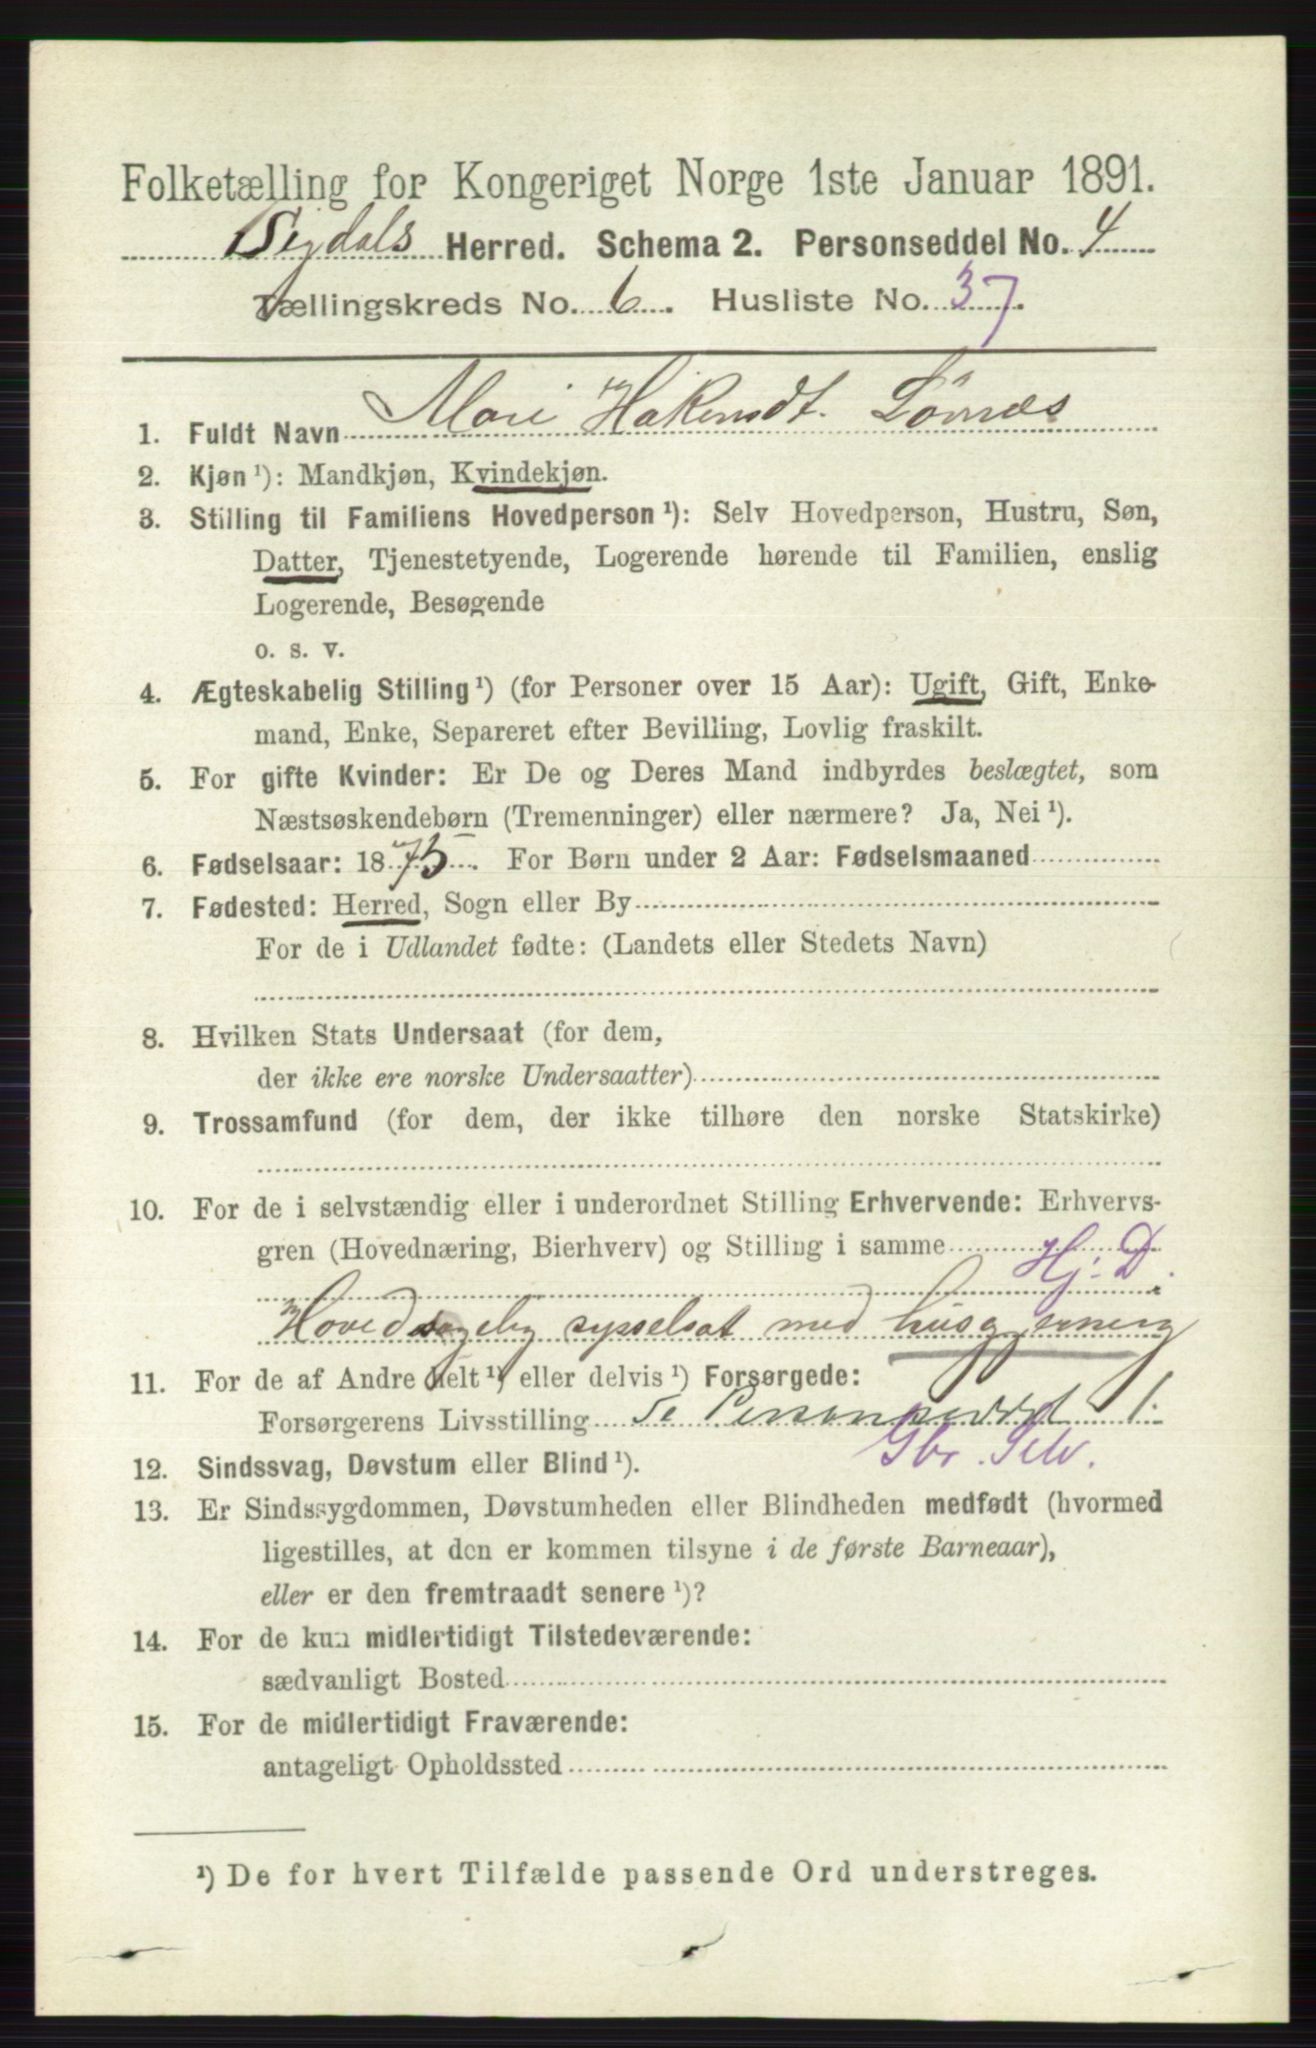 Folketælling for Kongeriget Norge 1ste Januar 1891.
Sigdals Herred. Schema 2. Personseddel No. 4
Tællingskreds No. 6. Husliste No. 37.
1. Fuldt Navn Mari Hakensdt.
2. Kjøn ¹): Mandkjøn, Kvindekjøn.
3. Stilling til Familiens Hovedperson ¹): Selv Hovedperson, Hustru, Søn,
Datter, Tjenestetyende, Logerende hørende til Familien, enslig
Logerende, Besøgende
o. s. v.
4. Ægteskabelig Stilling ¹) (for Personer over 15 Aar): Ugift, Gift, Enke-
mand, Enke, Separeret efter Bevilling, Lovlig fraskilt.
5. For gifte Kvinder: Er De og Deres Mand indbyrdes beslægtet, som
Næstsøskendebørn (Tremenninger) eller nærmere? Ja, Nei ¹).
6. Fødselsaar: 1875. For Børn under 2 Aar: Fødselsmaaned
7. Fødested: Herred, Sogn eller By
For de i Udlandet fødte: (Landets eller Stedets Navn)
8. Hvilken Stats Undersaat (for dem,
der ikke ere norske Undersaatter)
9. Trossamfund (for dem, der ikke tilhøre den norske Statskirke)
10. For de i selvstændig eller i underordnet Stilling Erhvervende: Erhvervs-
gren (Hovednæring, Bierhverv) og Stilling i samme
Hj. D.
Hovedsagelig sysselsat med husgjerning
11. For de af Andre helt ¹) eller delvis ¹) Forsørgede:
Forsørgerens Livsstilling Se Personseddel 1.
Gbr. Selv.
12. Sindssvag, Døvstum eller Blind ¹).
13. Er Sindssygdommen, Døvstumheden eller Blindheden medfødt (hvormed
ligestilles, at den er kommen tilsyne i de første Barneaar),
eller er den fremtraadt senere ¹)?
14. For de kun midlertidigt Tilstedeværende:
sædvanligt Bosted
15. For de midlertidigt Fraværende:
antageligt Opholdssted
¹) De for hvert Tilfælde passende Ord understreges.